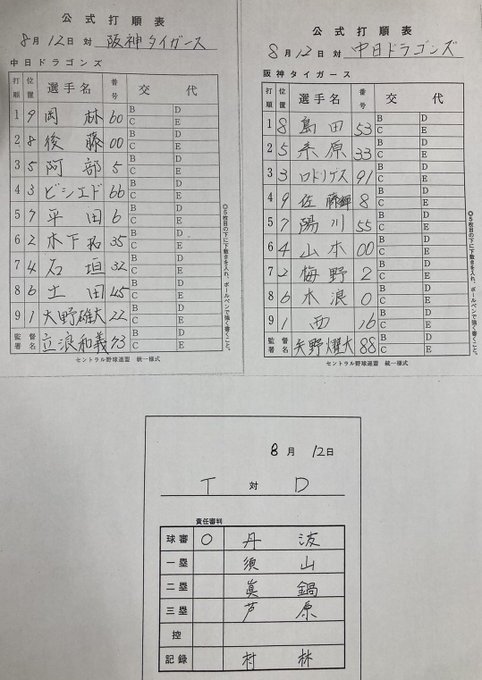 公式打順表
8月12日対 阪神タイガース
中日ドラゴンズ
打順 位置 選手名 番号 交代
1 9 岡林 60 B D C E
2 8 後藤 00 B D C E
3 5 阿部 5 B D C E
4 3 ビシエド 66 B D C E
5 7 平田 6 B D C E
6 2 木下拓 35 B D C E
7 4 石垣 32 B D C E
8 6 土田 45 B D C E
9 1 大野雄大 22 B D C E
監督署名 立浪和義 73
セントラル野球連盟 統一様式
◎5枚目の下に下敷きを入れ、ボールペンで強く書くこと。
公式打順表
8月12日対 中日ドラゴンズ
阪神タイガース
打順 位置 選手名 番号 交代
1 8 島田 53 B D C E
2 5 糸原 33 B D C E
3 3 ロドリゲス 91 B D C E
4 9 佐藤輝 8 B D C E
5 7 陽川 55 B D C E
6 4 山本 00 B D C E
7 2 梅野 2 B D C E
8 6 木浪 0 B D C E
9 1 西 16 B D C E
監督署名 矢野燿大 88 B D C E
セントラル野球連盟 統一様式
◎5枚目の下に下敷きを入れ、ボールペンで強く書くこと。
8月12日
T 対 D
責任審判
球審 ○ 丹波
一塁 須山
二塁 眞鍋
三塁 芦原
控
記録 村林